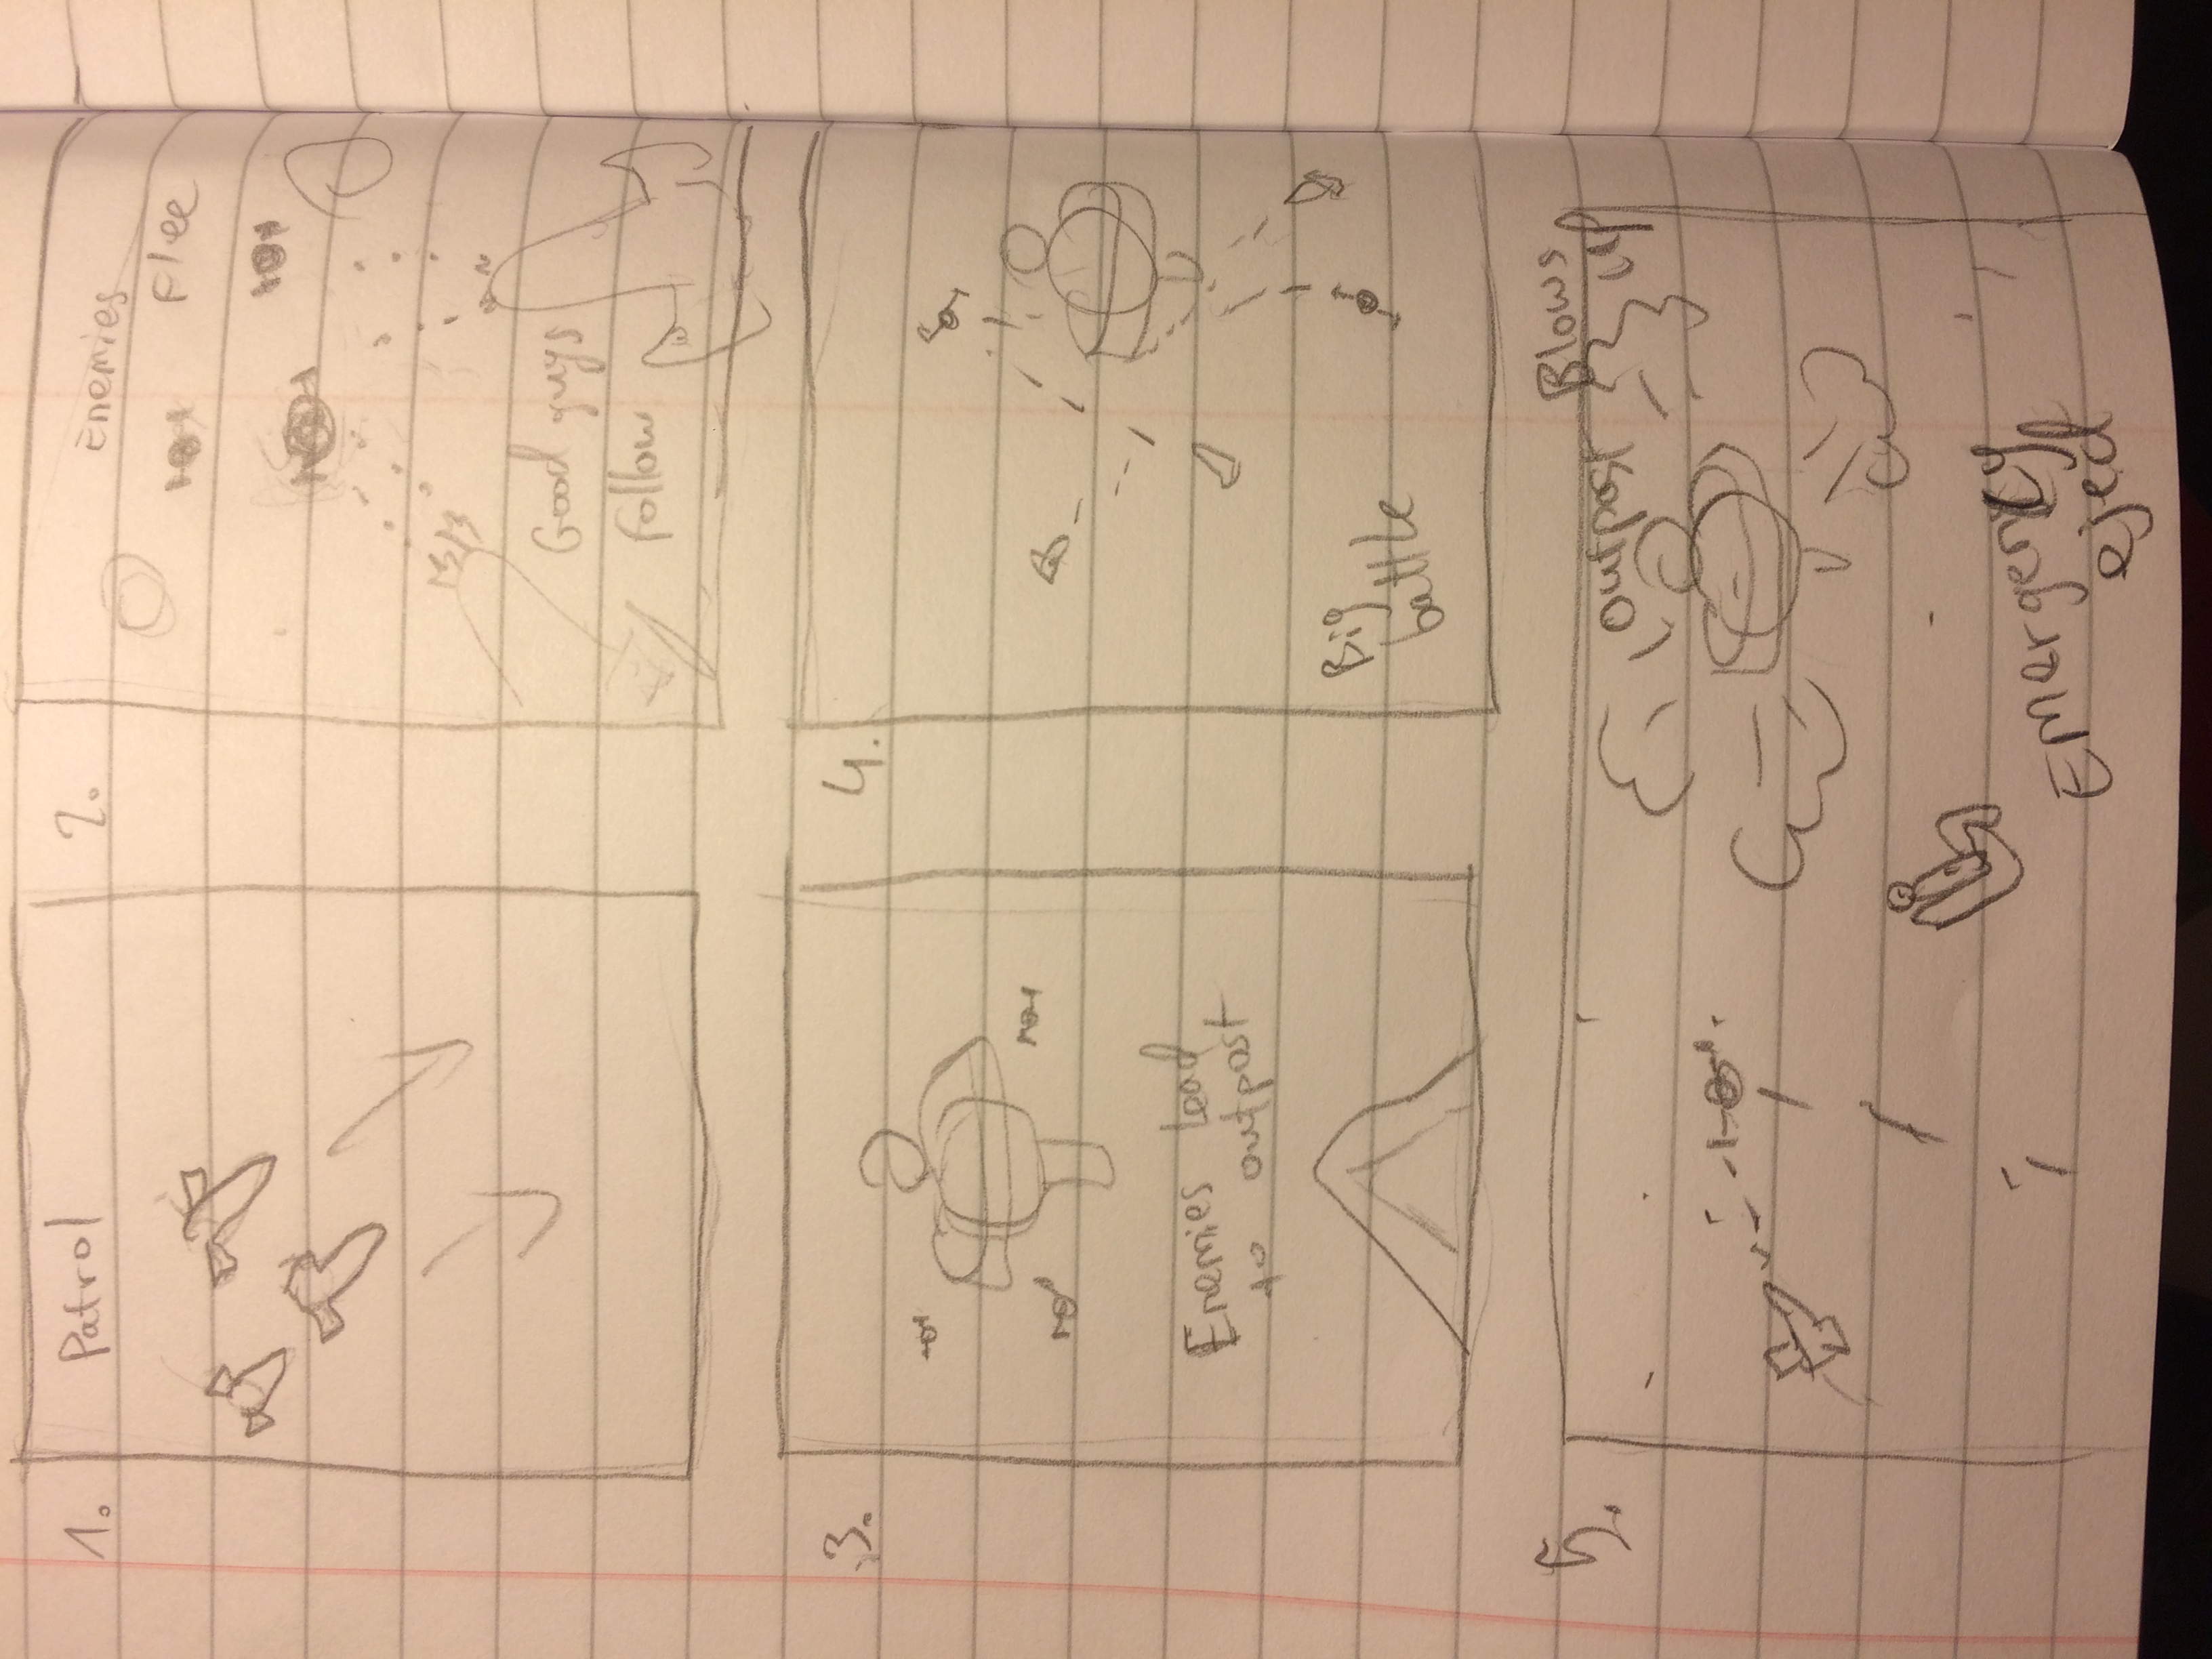 1.
Patrol
2.
Enemies
Flee
Good guys
follow
3.
Enemies lead
to outpost
4.
Big
battle
5.
Outpost Blows
up
Emergency
eject